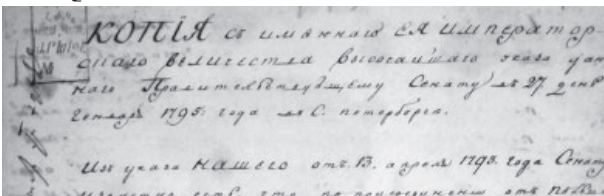 КОПІЯ съ имяннаго ЕЯ ИМператор-
скаго величества высочайшаго указа дан
наго Правительствующему Сенату въ 27. день
Генваря 1795. года въ С. петербурге.
Из указа НАШЕГО отъ 13. апреля 1793. года Сенату
известно есть что по присоединении отъ